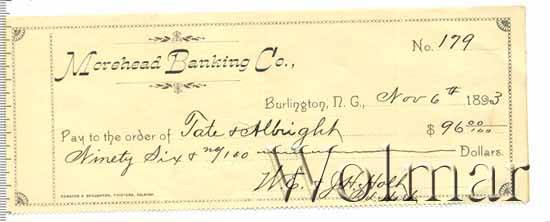 No. 179
Morehead Banking Co.,
Burlington, N. C., Nov 6th 1893
Pay to the order of Tate & Albright $ 96 00/100
Ninety Six & no/100 Dollars.
W. E. & J. H. Holt
Wolmar